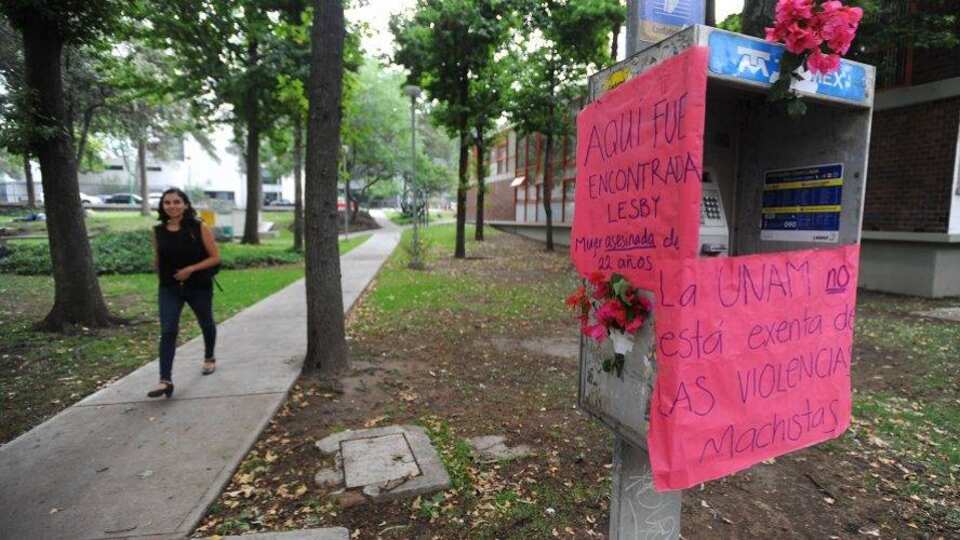 AQUÍ FUE
ENCONTRADA
LESBY
Mujer asesinada de
22 años
La UNAM no
está exenta de
LAS VIOLENCIAS
Machistas